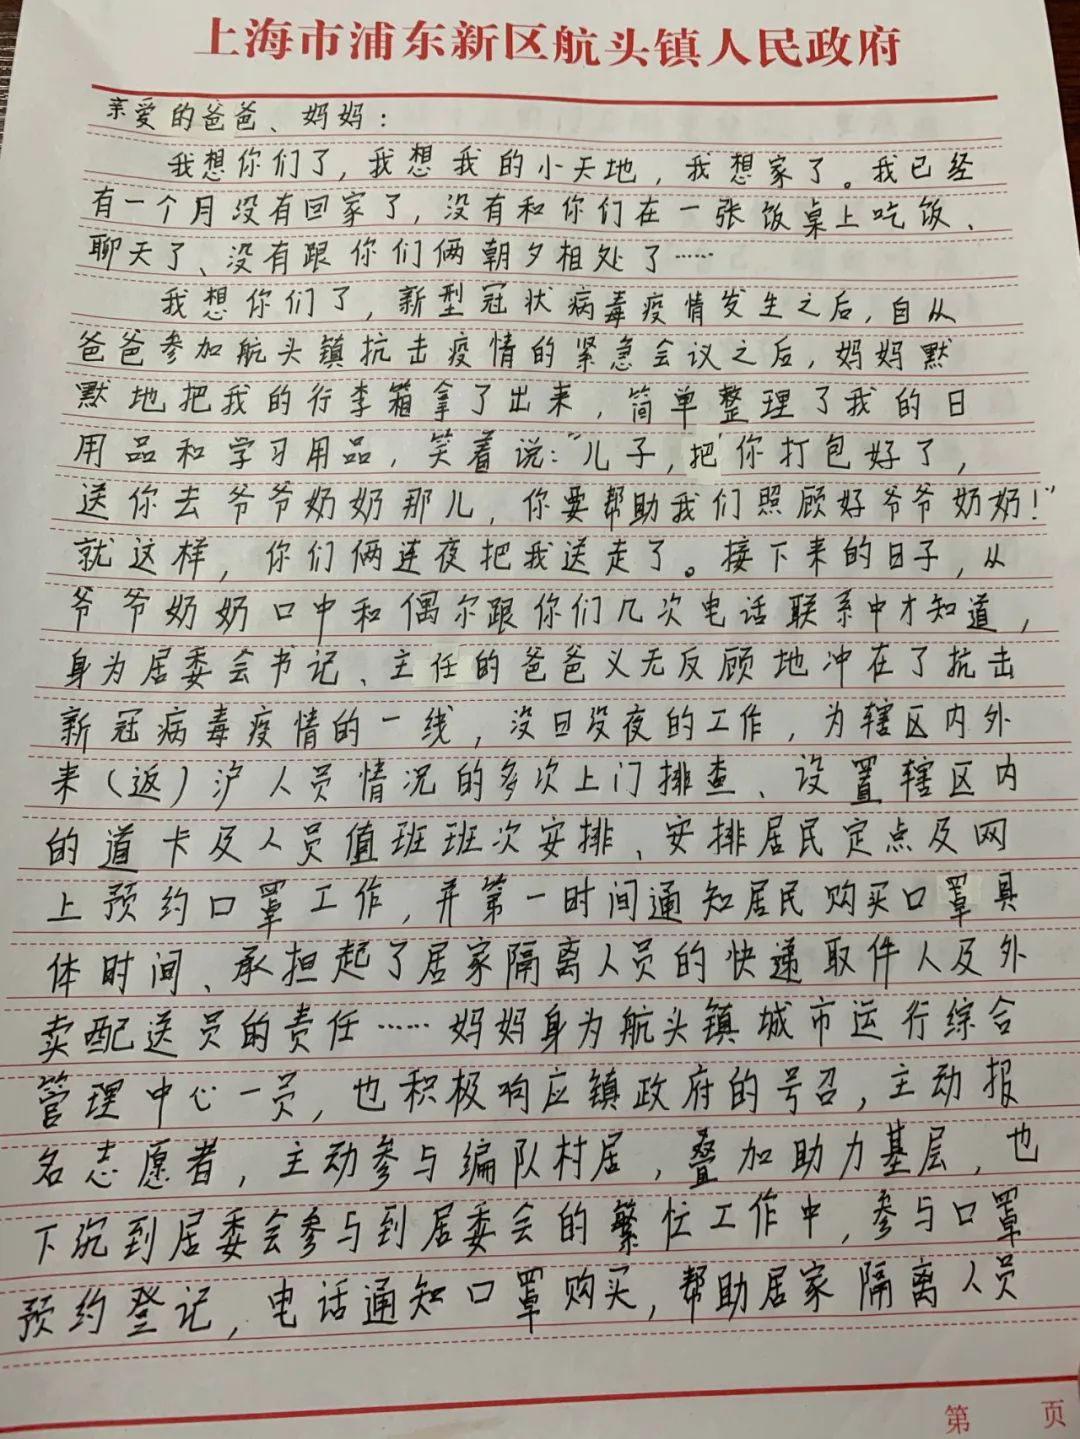 上海市浦东新区航头镇人民政府
亲爱的爸爸、妈妈：
我想你们了，我想我的小天地，我想家了。我已经
有一个月没有回家了，没有和你们在一张饭桌上吃饭、
聊天了、没有跟你们俩朝夕相处了……
我想你们了，新型冠状病毒疫情发生之后，自从
爸爸参加航头镇抗击疫情的紧急会议之后，妈妈默
默地把我的行李箱拿了出来，简单整理了我的日
用品和学习用品，笑着说：“儿子，把你打包好了，
送你去爷爷奶奶那儿，你要帮助我们照顾好爷爷奶奶！”
就这样，你们俩连夜把我送走了。接下来的日子，从
爷爷奶奶口中和偶尔跟你们几次电话联系中才知道，
身为居委会书记、主任的爸爸义无反顾地冲在了抗击
新冠病毒疫情的一线，没日没夜的工作，为辖区内外
来（返）沪人员情况的多次上门排查、设置辖区内
的道卡及人员值班班次安排、安排居民定点及网
上预约口罩工作，并第一时间通知居民购买口罩具
体时间、承担起了居家隔离人员的快递取件人及外
卖配送员的责任……妈妈身为航头镇城市运行综合
管理中心一员，也积极响应镇政府的号召，主动报
名志愿者，主动参与编队村居，叠加助力基层，也
下沉到居委会参与到居委会的繁忙工作中，参与口罩
预约登记，电话通知口罩购买，帮助居家隔离人员
第 页